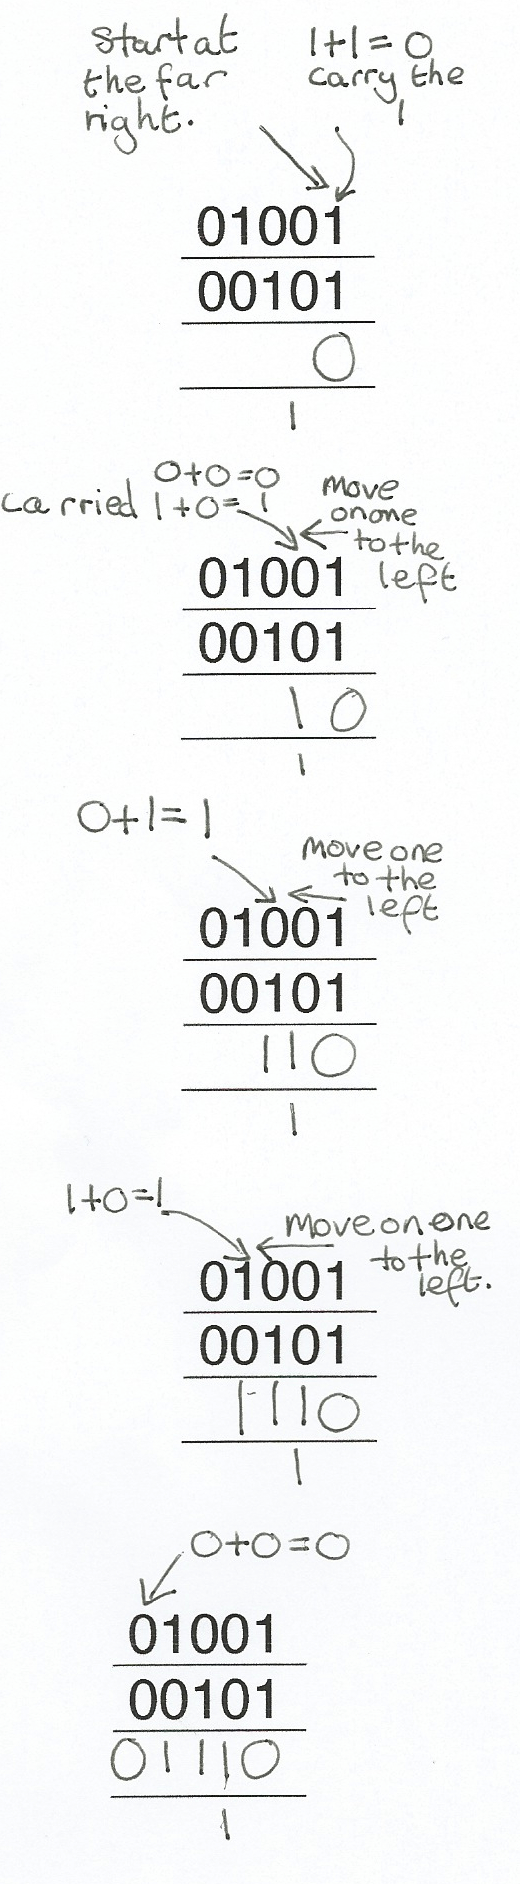 Start at
the far
right.
1+1=0
carry the
1
01001
00101
0
1
0+0=0
carried 1+0=1
move
on one
to the
left
01001
00101
10
1
0+1=1
move one
to the
left
01001
00101
110
1
1+0=1
move on one
to the
left.
01001
00101
1110
1
0+0=0
01001
00101
01110
1